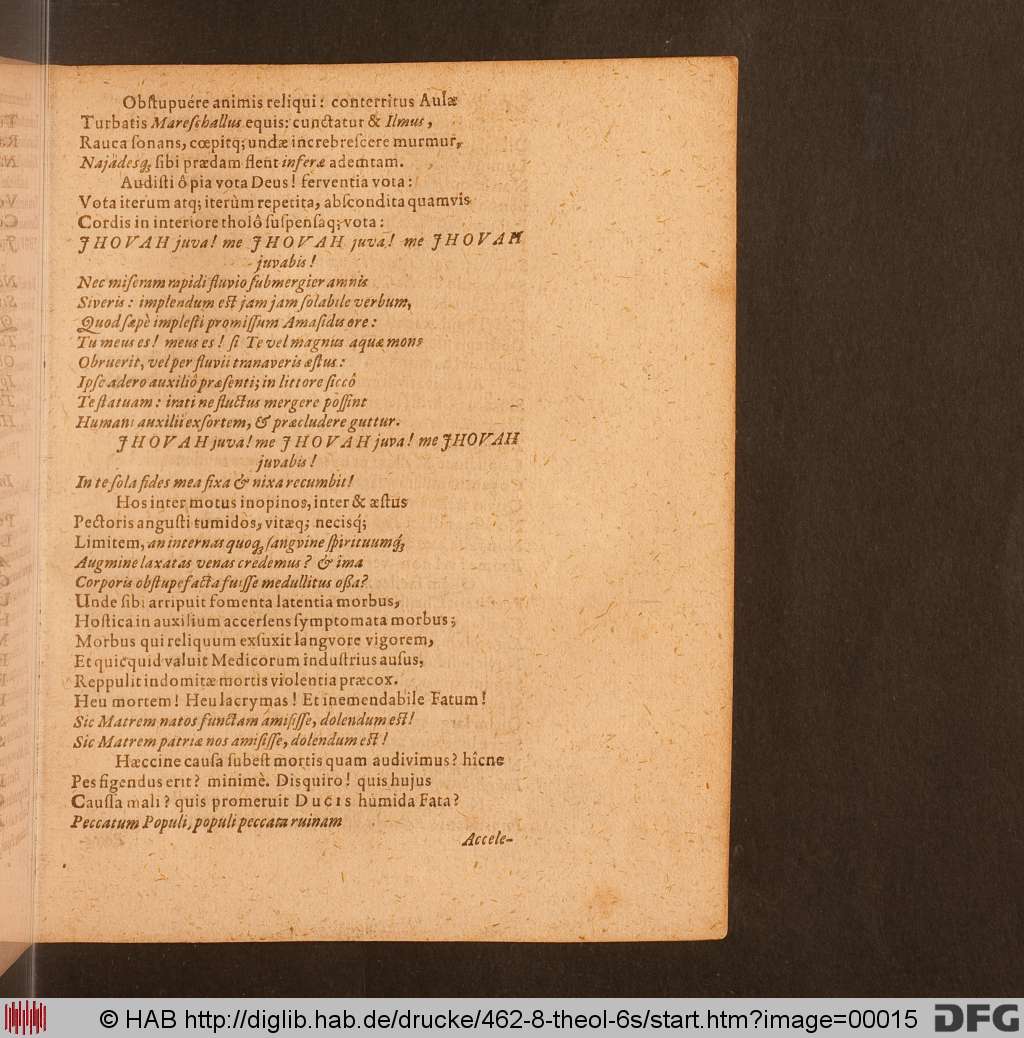 Obſtupuére animis reliqui: conterritus Aulæ
Turbatis Mareſchallus equis: cunctatur & Ilmus,
Rauca ſonans, cœpitq; undæ increbreſcere murmur,
Najadesq; ſibi prædam flent inferæ ademtam.
Audiſti ô pia vota Deus! ferventia vota:
Vota iterum atq; iterùm repetita, abſcondita quamvîs
Cordis in interiore tholô ſuſpenſaq; vota:
JHOVAH juva! me JHOVAH juva! me JHOVAH
juvabis!
Nec miſeram rapidi fluvio ſubmergier amnis
Siveris: implendum eſt jam jam ſolabile verbum,
Quod ſæpè impleſti promiſſum Amaſidus ore:
Tu meus es! meus es! ſi Te vel magnus aquæ mons
Obruerit, vel per fluvii tranaveris æſtus:
Ipſe adero auxiliô præſenti; in littore ſiccô
Te ſtatuam: irati ne fluctus mergere poſſint
Humani auxilii exſortem, & præcludere guttur.
JHOVAH juva! me JHOVAH juva! me JHOVAH
juvabis!
In te ſola fides mea fixa & nixa recumbit!
Hos inter motus inopinos, inter & æſtus
Pectoris anguſti tumidos, vitæq; necisq́;
Limitem, an internas quoq; ſangvine ſpirituumq́;
Augmine laxatas venas credemus? & ima
Corporis obſtupefacta fuiſſe medullitus oſſa?
Unde ſibi arripuit fomenta latentia morbus,
Hoſtica in auxilium accerſens ſymptomata morbus;
Morbus qui reliquum exſuxit langvore vigorem,
Et quicquid valuit Medicorum induſtrius auſus,
Reppulit indomitæ mortis violentia præcox.
Heu mortem! Heu lacrymas! Et inemendabile Fatum!
Sic Matrem natos functam amiſiſſe, dolendum eſt!
Sic Matrem patriæ nos amiſiſſe, dolendum eſt!
Hæccine cauſa ſubeſt mortis quam audivimus? hîcne
Pes figendus erit? minimè. Disquiro! quis hujus
Cauſſa mali? quis promeruit Ducis humida Fata?
Peccatum Populi, populi peccata ruinam
Accele-
© HAB http://diglib.hab.de/drucke/462-8-theol-6s/start.htm?image=00015
DFG